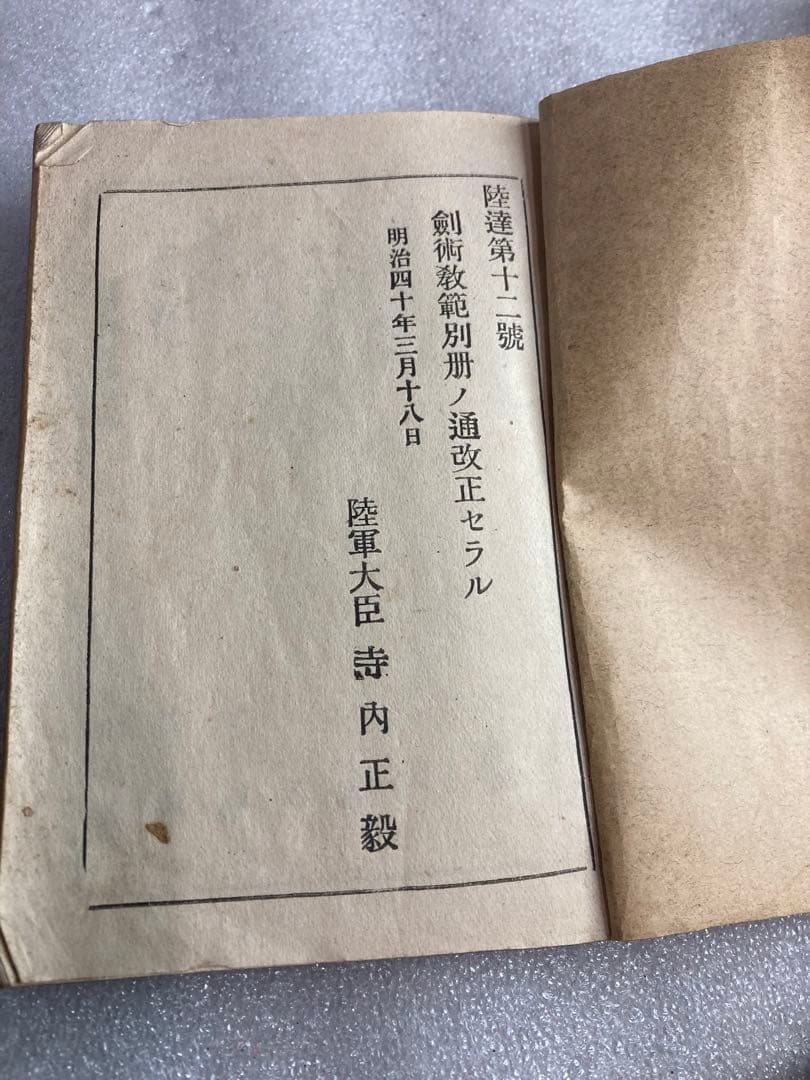 陸達第十二號
劍術敎範別册ノ通改正セラル
明治四十年三月十八日
陸軍大臣 寺內正毅